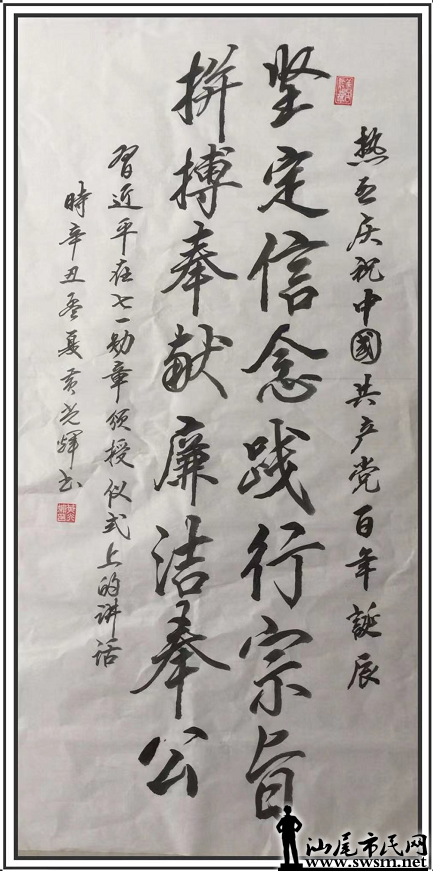 热烈庆祝中國共产党百年誕辰
坚定信念践行宗旨
拚搏奉献廉洁奉公
習近平在七一勋章颁授仪式上的讲话
時辛丑孟夏黄光輝书
汕尾市民网
www.swsm.net